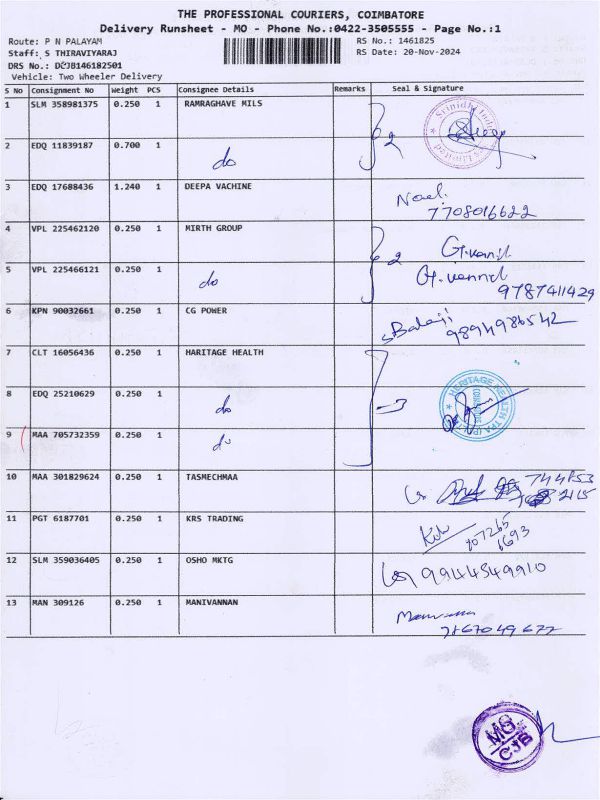 THE PROFESSIONAL COURIERS, COIMBATORE
Delivery Runsheet - MO - Phone No.:0422-3505555 - Page No.:1
Route: P N PALAYAM RS No.: 1461825
Staff: S THIRAVIYARAJ RS Date: 20-Nov-2024
DRS No.: DCJB146182501
Vehicle: Two Wheeler Delivery
S No Consignment No Weight PCS Consignee Details Remarks Seal & Signature
1 SLM 358981375 0.250 1 RAMRAGHAVE MILS
2 EDQ 11839187 0.700 1 do 2
3 EDQ 17688436 1.240 1 DEEPA VACHINE
7708016622
4 VPL 225462120 0.250 1 MIRTH GROUP
5 VPL 225466121 0.250 1 do 2
9787411429
6 KPN 90032661 0.250 1 CG POWER S Balaji
9894986542
7 CLT 16056436 0.250 1 HARITAGE HEALTH
8 EDQ 25210629 0.250 1 do 3 HERITAGE HEALTH TPA
9 MAA 705732359 0.250 1 do
10 MAA 301829624 0.250 1 TASMECHMAA
11 PGT 6187701 0.250 1 KRS TRADING
12 SLM 359036405 0.250 1 OSHO MKTG 9944549910
13 MAN 309126 0.250 1 MANIVANNAN
MG
CJB